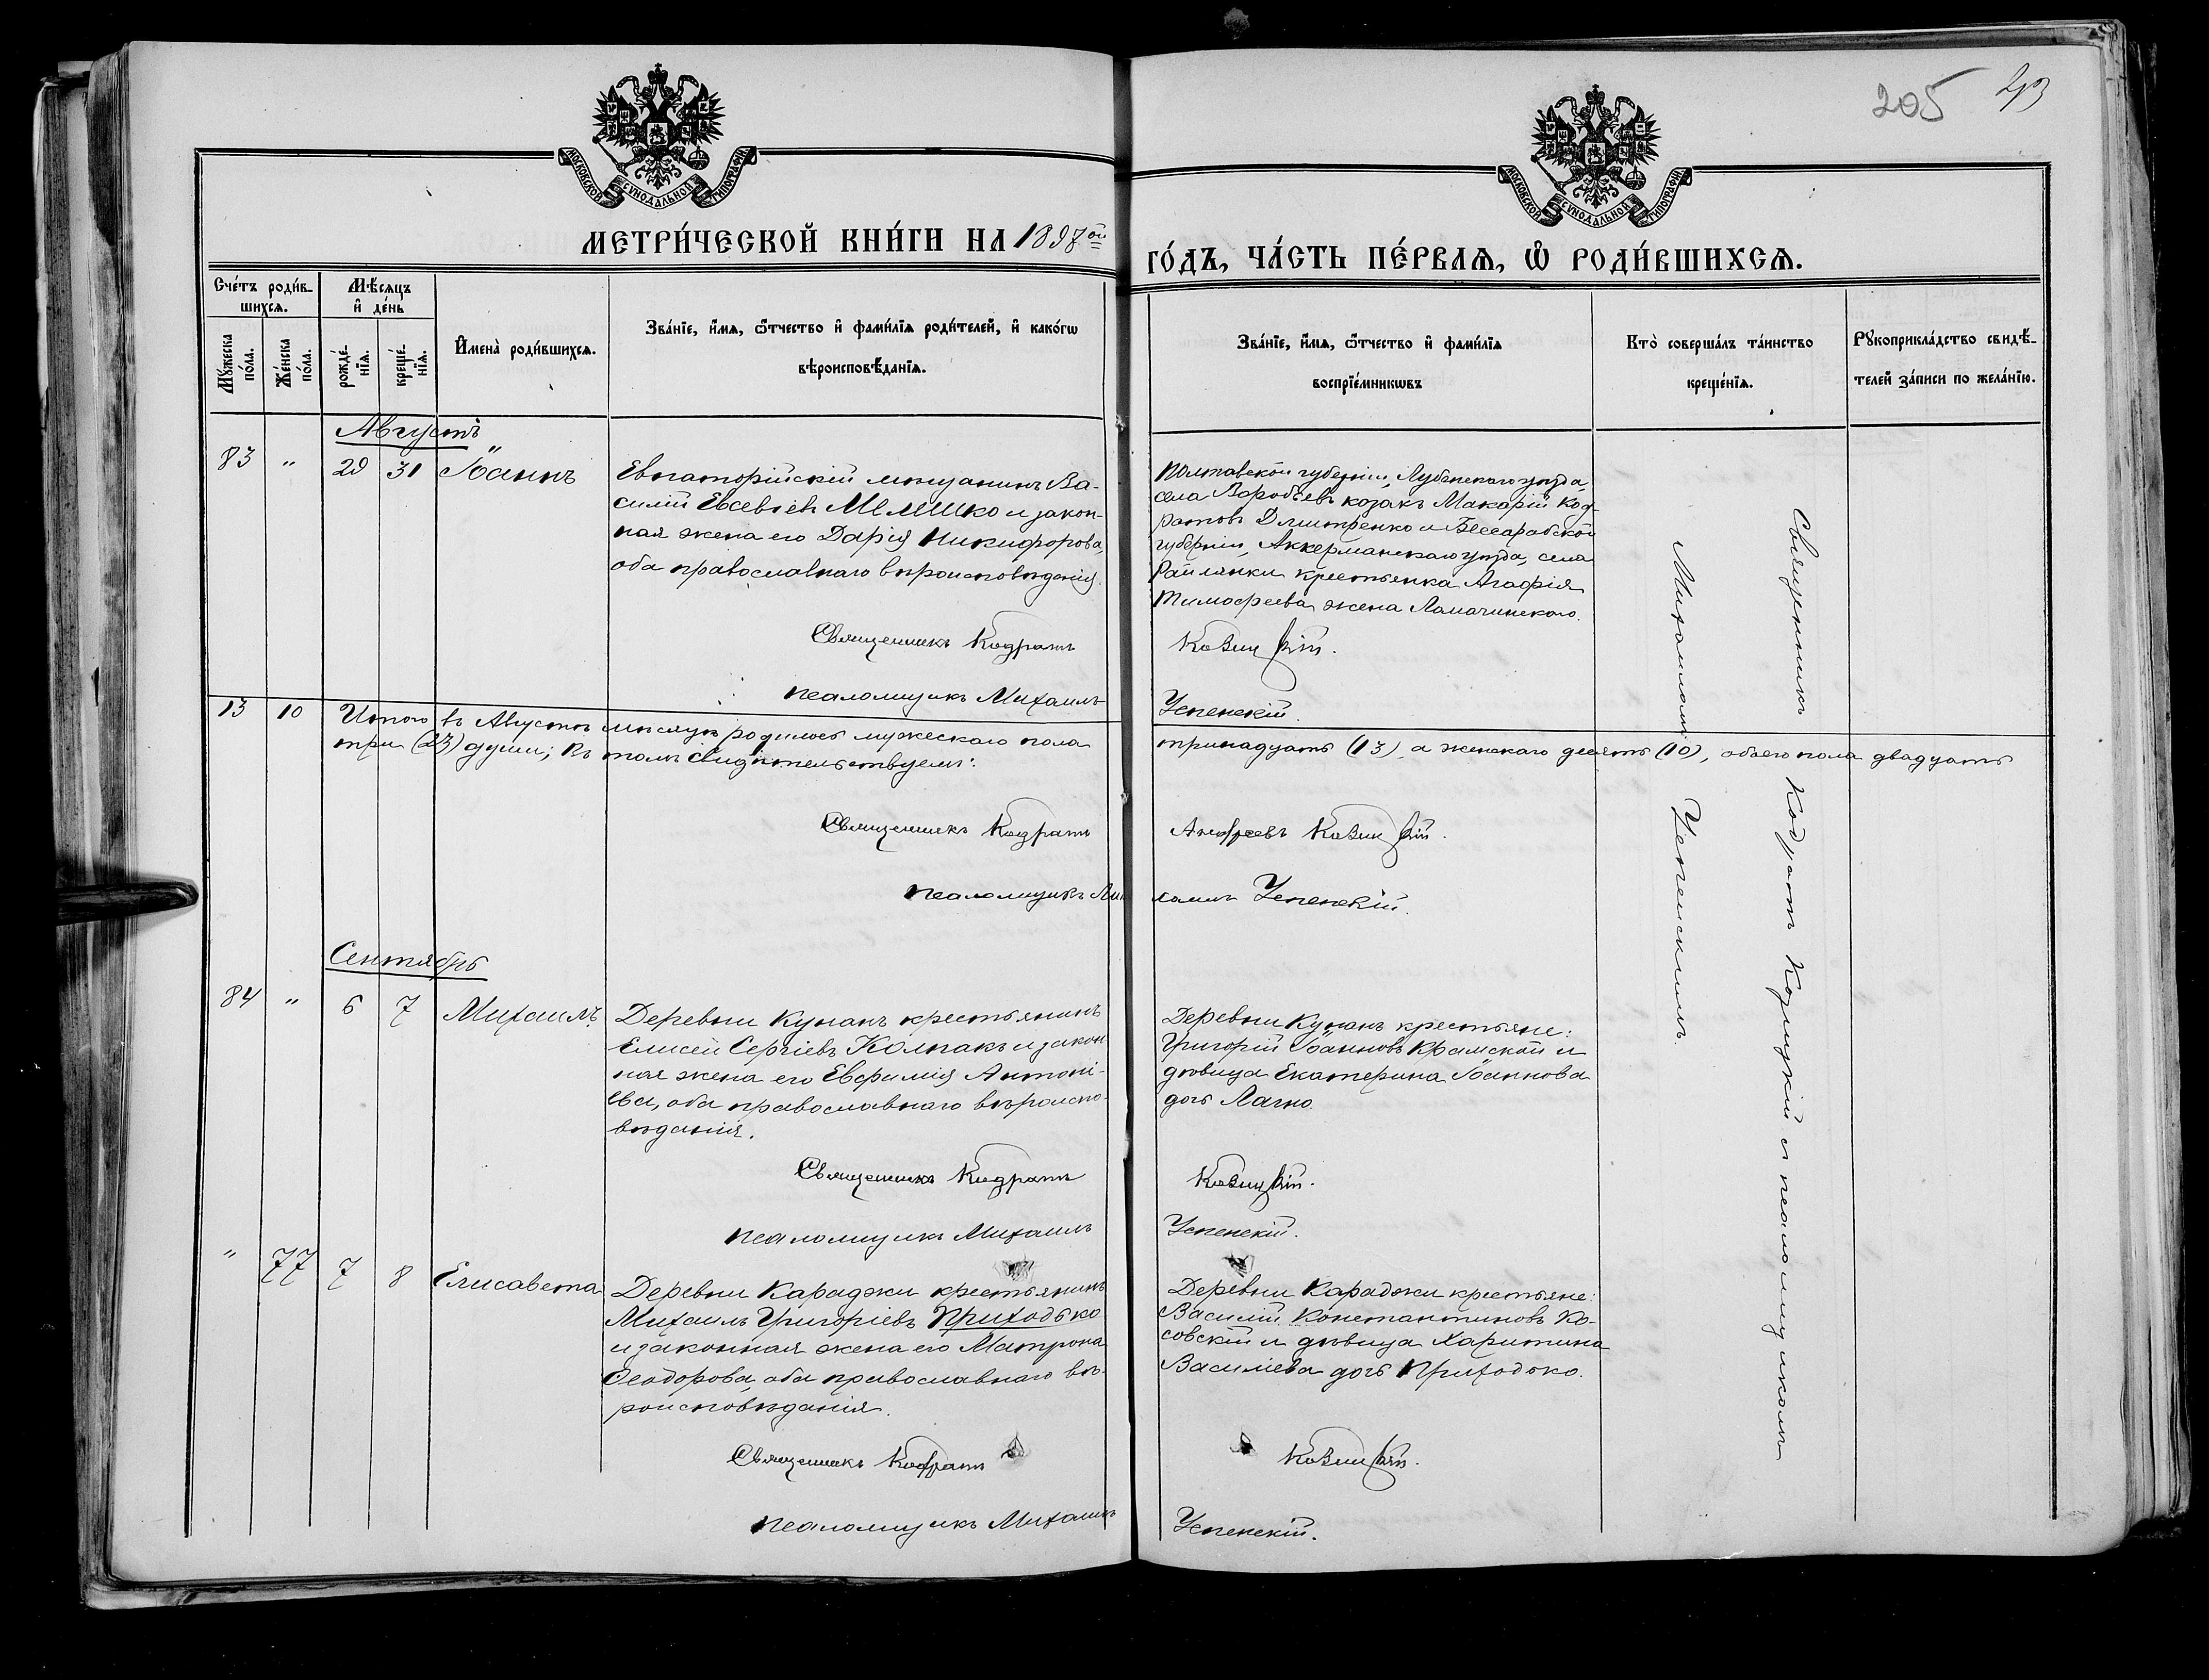 205
МОСКОВСКОЙ СѴНОДАЛЬНОЙ ТИПОГРАФІИ
МОСКОВСКОЙ СѴНОДАЛЬНОЙ ТИПОГРАФІИ
МЕТРИ́ЧЕСКОЙ КНИ́ГИ НА 1897ой
ГО́ДЪ, ЧА́СТЬ ПЕ́РВАѦ, Ѡ҆ РОДИ́ВШИХСѦ.
Сче́тъ роди́в-
шихсѧ.
Мѣ́сяцъ
и҆ де́нь
Мꙋ́жеска
по́ла.
Же́нска
по́ла.
рожде́-
нїѧ.
креще́-
нїѧ.
И҆мена̀ роди́вшихсѧ.
Зва́нїе, и҆́мѧ, ѻ҆́тчество и҆ фами́лїѧ роди́телей, и҆ како́гѡ
вѣроисповѣ́данїѧ.
Зва́нїе, и҆́мѧ, ѻ҆́тчество и҆ фами́лїѧ
воспрїе́мникѡвъ
Кто̀ соверша́лъ та́инство
креще́нїѧ.
Рꙋкоприкла́дство свидѣ́-
телей за́писи по жела́нїю.
Августъ
83 " 29 31 Іоаннъ
Евпаторійскій мѣщанинъ Ва-
силій Евсевіевъ Мѣмшко и закон-
ная жена его Дарія Никифорова,
оба православнаго вѣроисповѣданія.
Священникъ Кодратъ
псаломщикъ Михаилъ
Полтавской губерніи, Лубенскаго уѣзда
села Воробьевъ козакъ Макарій Код-
ратовъ Дмитренко и Бессарабской
губерніи, Аккерманскаго уѣзда, села
Райлянки крестьянка Агафія
Тимофеева жена Ламачинского.
Козицкій.
Успенскій.
13 10 Итого въ Августѣ мѣсяцѣ родилось мужескаго пола
тринадцать (13), а женскаго десять (10), обоего пола двадцать
три (23) души; въ томъ свидѣтельствуемъ:
Священникъ Кодратъ
Андреевъ Козицкій.
псаломщикъ Ми
хаилъ Успенскій.
Сентябрь
84 " 6 7 Михаилъ
Деревни Кунанъ крестьянинъ
Елисей Сергіевъ Колпакъ и закон
ная жена его Евфимія Антоні-
ева, оба православнаго вѣроиспо-
вѣданія.
Священникъ Кодратъ
псаломщикъ Михаилъ
Деревни Кунанъ крестьяне:
Григорій Іоанновъ Крамской и
дѣвица Екатерина Іоаннова
дочь Лагно.
Козицкій.
Успенскій.
" 77 7 8 Елисавета
Деревни Караджи крестьянинъ
Михаилъ Григоріевъ Приходько
и законная жена его Матрона
Ѳеодорова, оба православнаго вѣ-
роисповѣданія.
Священникъ Кодратъ
псаломщикъ Михаилъ
Деревни Караджи крестьяне:
Василій Константиновъ Ко-
совскій и дѣвица Харитина
Василіева дочь Приходько.
Козицкій.
Успенскій.
Священникъ Кодратъ Козицкій съ псаломщикомъ
Михаиломъ Успенскимъ.